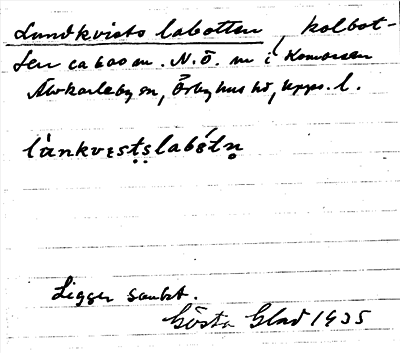 Lundkvists labotten, kolbot-
ten ca 600 m. N.Ö. om i
Älvkarleby sn, Örbyhus hd, Upps. l.
lànkvɛsṭṣlabótṇ
Ligger sankt.
Gösta Glad 1935